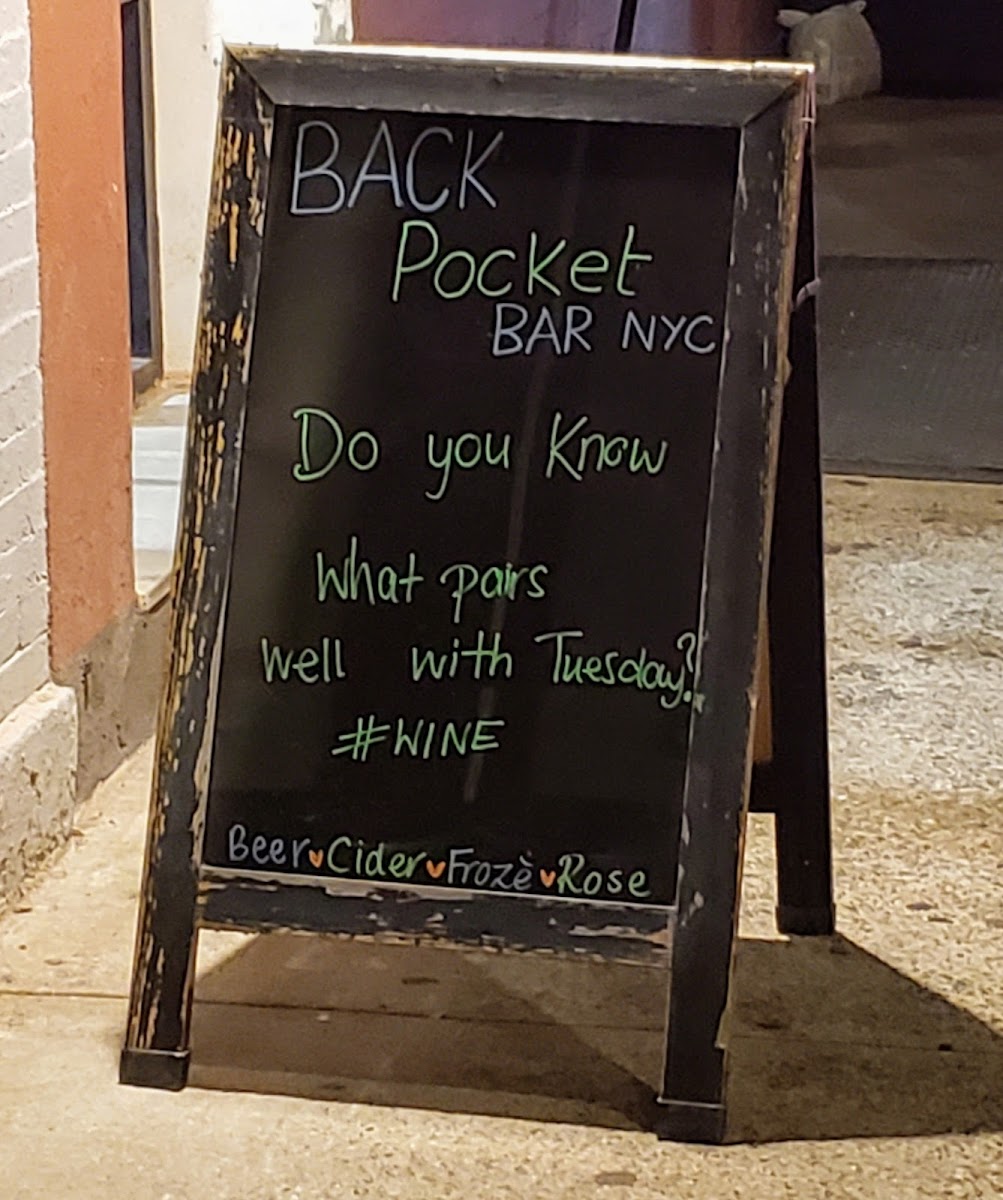 BACK
Pocket
BAR NYC
Do you Know
What pairs
Well with Tuesday?!
#WINE
Beer Cider Frozè Rose